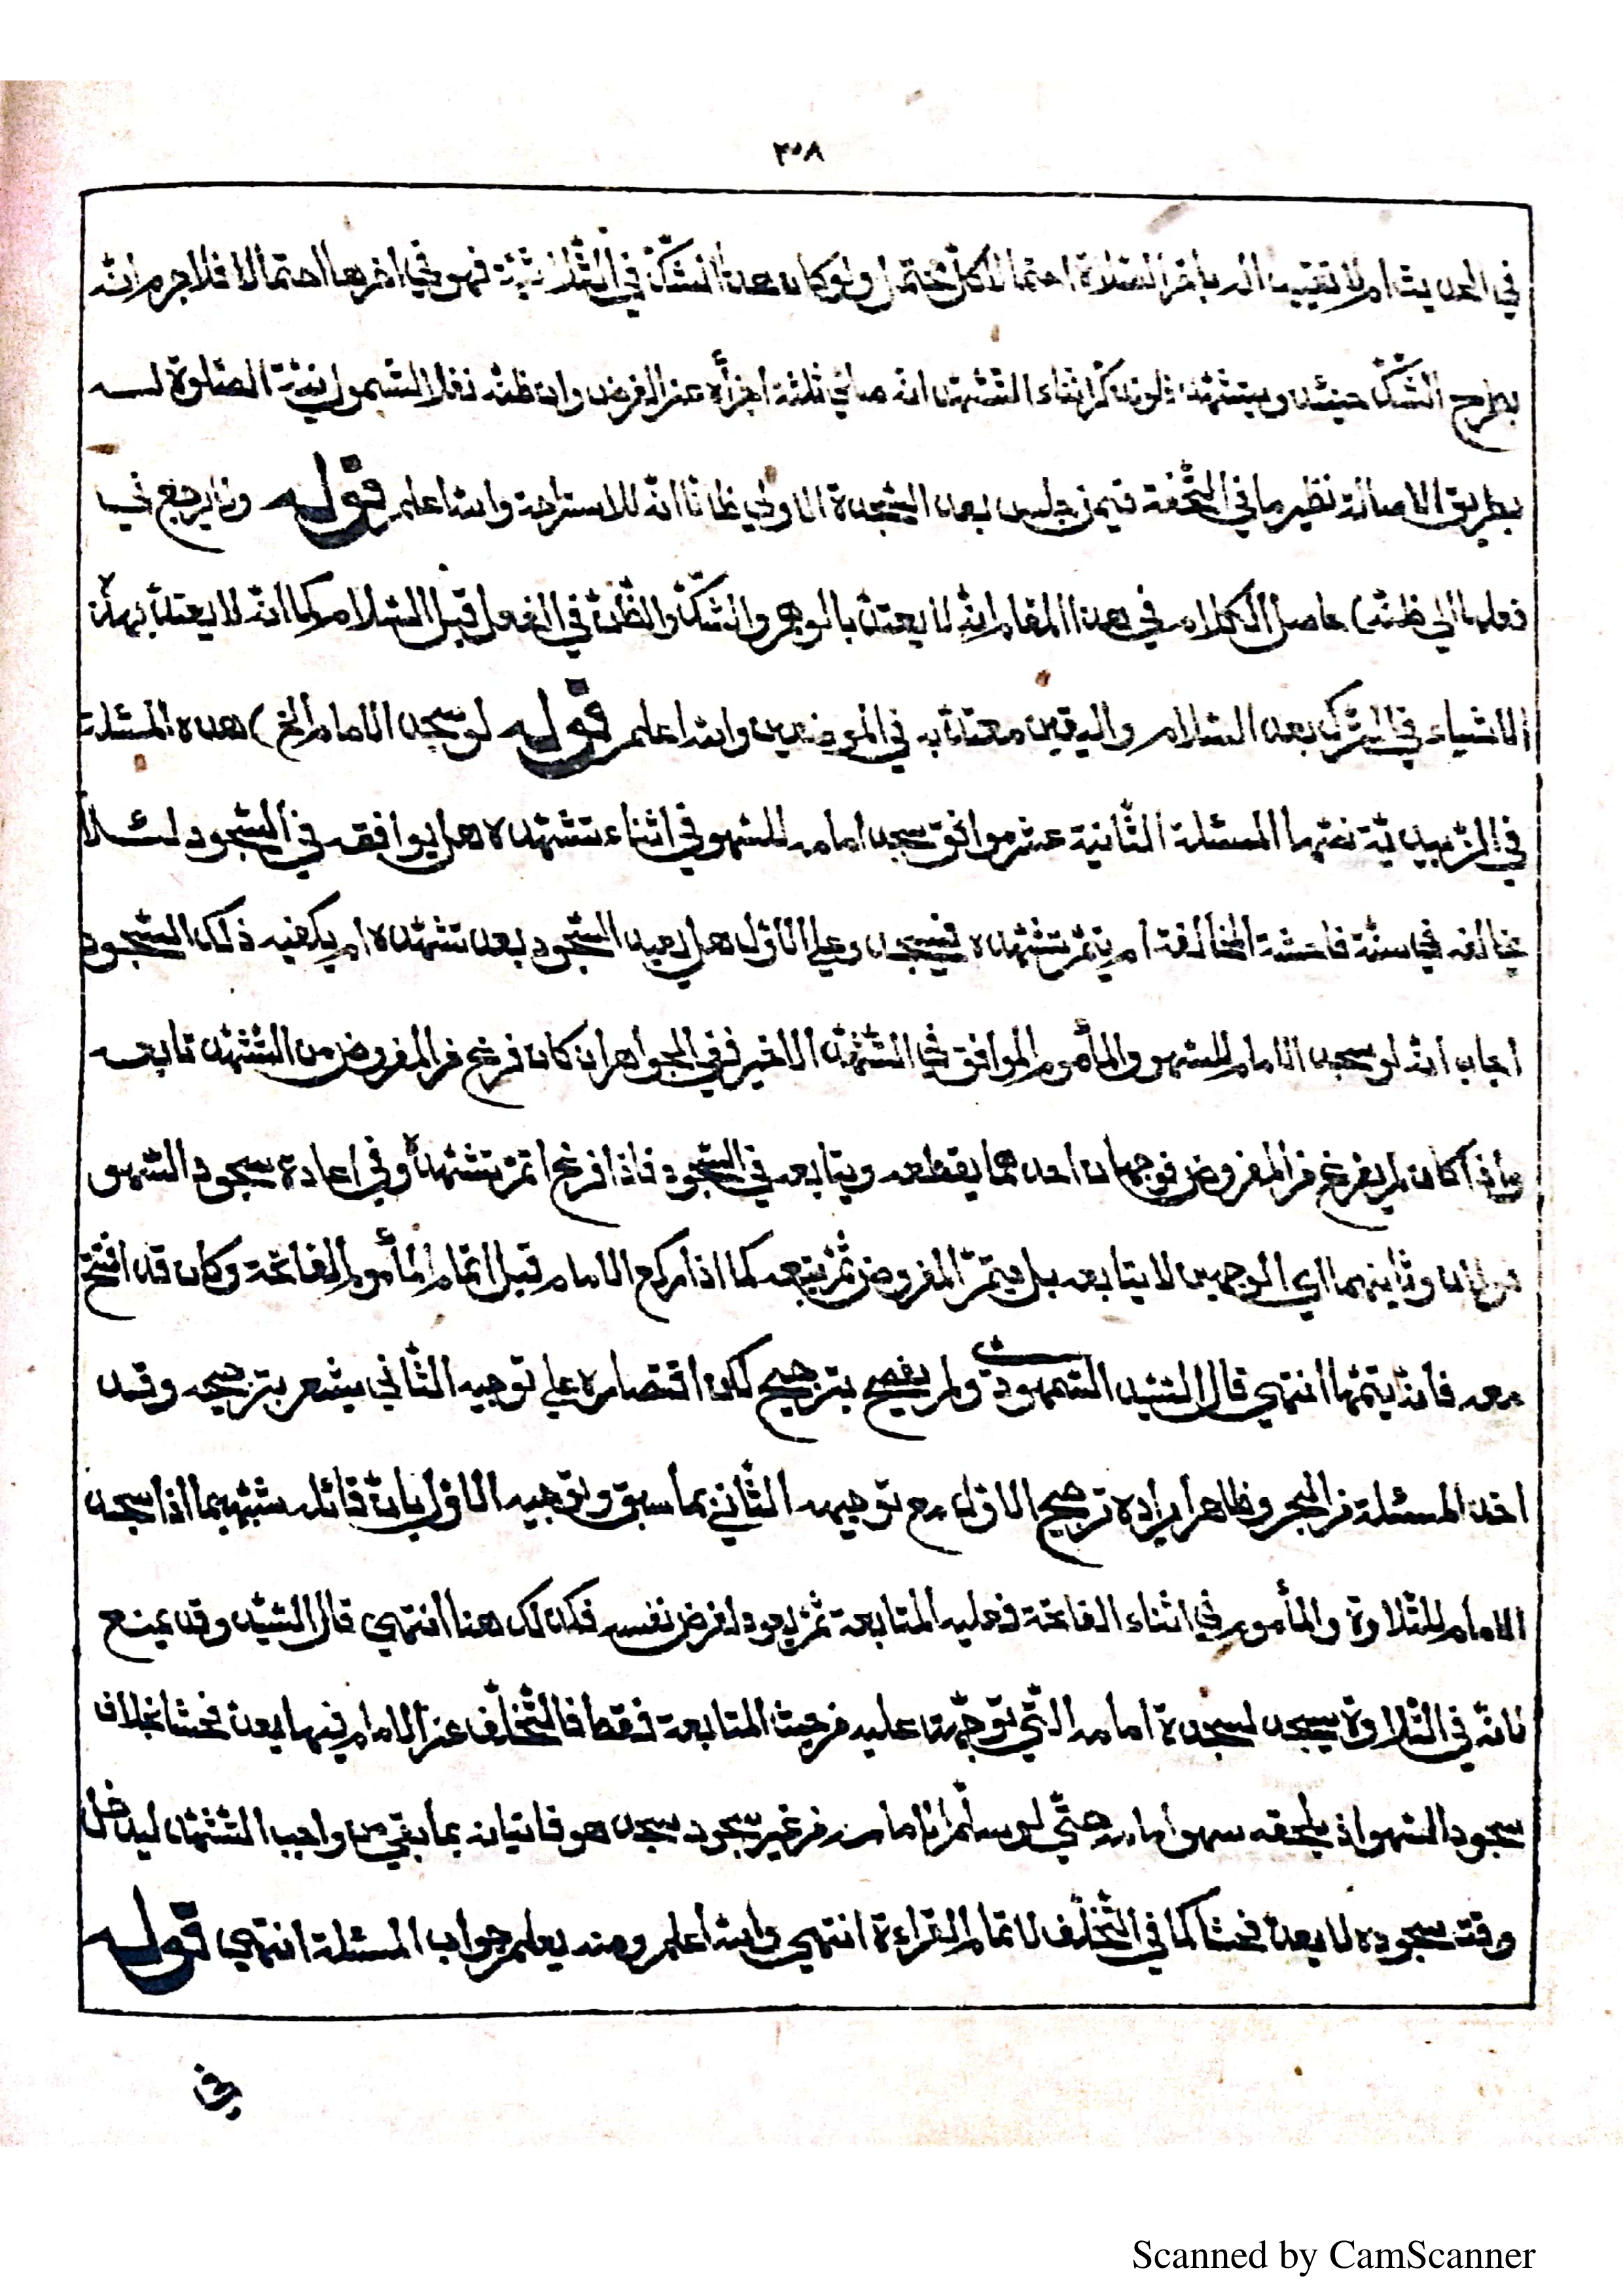 ٣٠٨
في الحديث ام لا تقييد الدباخر الصلاة احتمالا كل محتمل ولو كان هذا الشك في الثلاثية فهو في اخرها احتمالا فلا جرم انه
يطرح الشك حينئذ ويتشهد فلو تذكر اثناء التشهد انه صلي ثلثة اجزأه عن الفرض وان ظنه نفلا لشمول نية الصلوة لـه
بطريق الاصالة نظير ما في التحفة فيمن جلس بعد السجدة الاولي ظانا انه للاستراحة والله اعلم قوله ولا يرجع في
فعلها الي ظنه) حاصل الكلام في هذا المقام انه لا يعتد بالوهم والشك والظن في الفعل قبل السلام كما انه لا يعتد بهذه
الاشياء في الترك بعد السلام واليقين معتد به في الموضعين والله اعلم قوله لو سجد الامام الخ) هذه المسئلة
في الزبيدية نصها المسئلة الثانية عشر موافق سجد امامه للسهو في اثناء تشهده هل يوافقه في السجود لئلا
يخالفه في سنة فاحشة المخالفة ام يتم تشهده فيسجد وعلي الاول هل يعيد السجود بعد تشهده ام يكفيه ذلك السجود
اجاب انه لو سجد الامام للسهو والمأموم الموافق في التشهد الاخير ففي الجواهر ان كان فرغ من المفروض من التشهد تابعه
واذا كان لم يفرغ من المفروض فوجهان احدهما يقطعه ويتابعه في السجود فاذا فرغ اتم تشهده وفي اعادة سجود السهو
قولان وثانيهما اي الوجهين لا يتابعه بل يتم المفروض ثم يتبعه كما اذا ركع الامام قبل اتمام المأموم الفاتحة وكان قد افتتح
معه فانه يتمها انتهي قال السيد السمهودي ولم يفصح بترجيح لكن اقتصاره علي توجيه الثاني يشعر بترجيحه وقد
اخذ المسئلة من البحر وظاهر ايراده ترجيح الاول مع توجيهه الثاني بما سبق وتوجيه الاول بان قائله شبهه بما اذا سجد
الامام للتلاوة والمأموم في اثناء الفاتحة فعليه المتابعة ثم يعود لفرض نفسه فكذلك هنا انتهي قال السيد وقد يمنع
فانه في التلاوة يسجد لسجدة امامه التي توجهت عليه من حيث المتابعة فقط فالتخلف عن الامام فيها يعد فحشا بخلاف
سجود السهو اذ يلحقه سهو امامه حتي لو سلم الامام من غير سجود سجد هو فاتيانه بما بقي من واجب التشهد ليدخل
وقت سجوده لا يعد فحشا كما في التخلف لاتمام القراءة انتهي والله اعلم ومنه يعلم جواب المسئلة انتهي قوله
في
Scanned by CamScanner